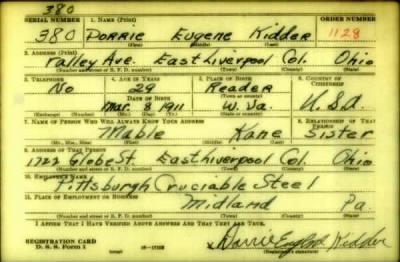 380
SERIAL NUMBER 1. NAME (Print) ORDER NUMBER
380 DORRIE Eugene Kidder 1128
(First) (Middle) (Last)
2. ADDRESS (Print)
Valley Ave. East Liverpool Col. Ohio
(Number and street or R. F. D. number) (Town) (County) (State)
3. TELEPHONE 4. AGE IN YEARS 5. PLACE OF BIRTH 6. COUNTRY OF CITIZENSHIP
No 29 Reader
DATE OF BIRTH (Town or county)
Mar. 8 1911 W. Va. U.S.A.
(Exchange) (Number) (Mo.) (Day) (Yr.) (State or country)
7. NAME OF PERSON WHO WILL ALWAYS KNOW YOUR ADDRESS 8. RELATIONSHIP OF THAT PERSON
Mable Kane Sister
(Mr., Mrs., Miss) (First) (Middle) (Last)
9. ADDRESS OF THAT PERSON
1722 Globe St. East Liverpool Col. Ohio
(Number and street or R. F. D. number) (Town) (County) (State)
10. EMPLOYER'S NAME
Pittsburgh Cruciable Steel
11. PLACE OF EMPLOYMENT OR BUSINESS
Midland Pa.
(Number and street or R. F. D. number) (Town) (County) (State)
I AFFIRM THAT I HAVE VERIFIED ABOVE ANSWERS AND THAT THEY ARE TRUE.
REGISTRATION CARD
D. S. S. Form 1 Dorrie Eugene Kidder
(Registrant's signature)